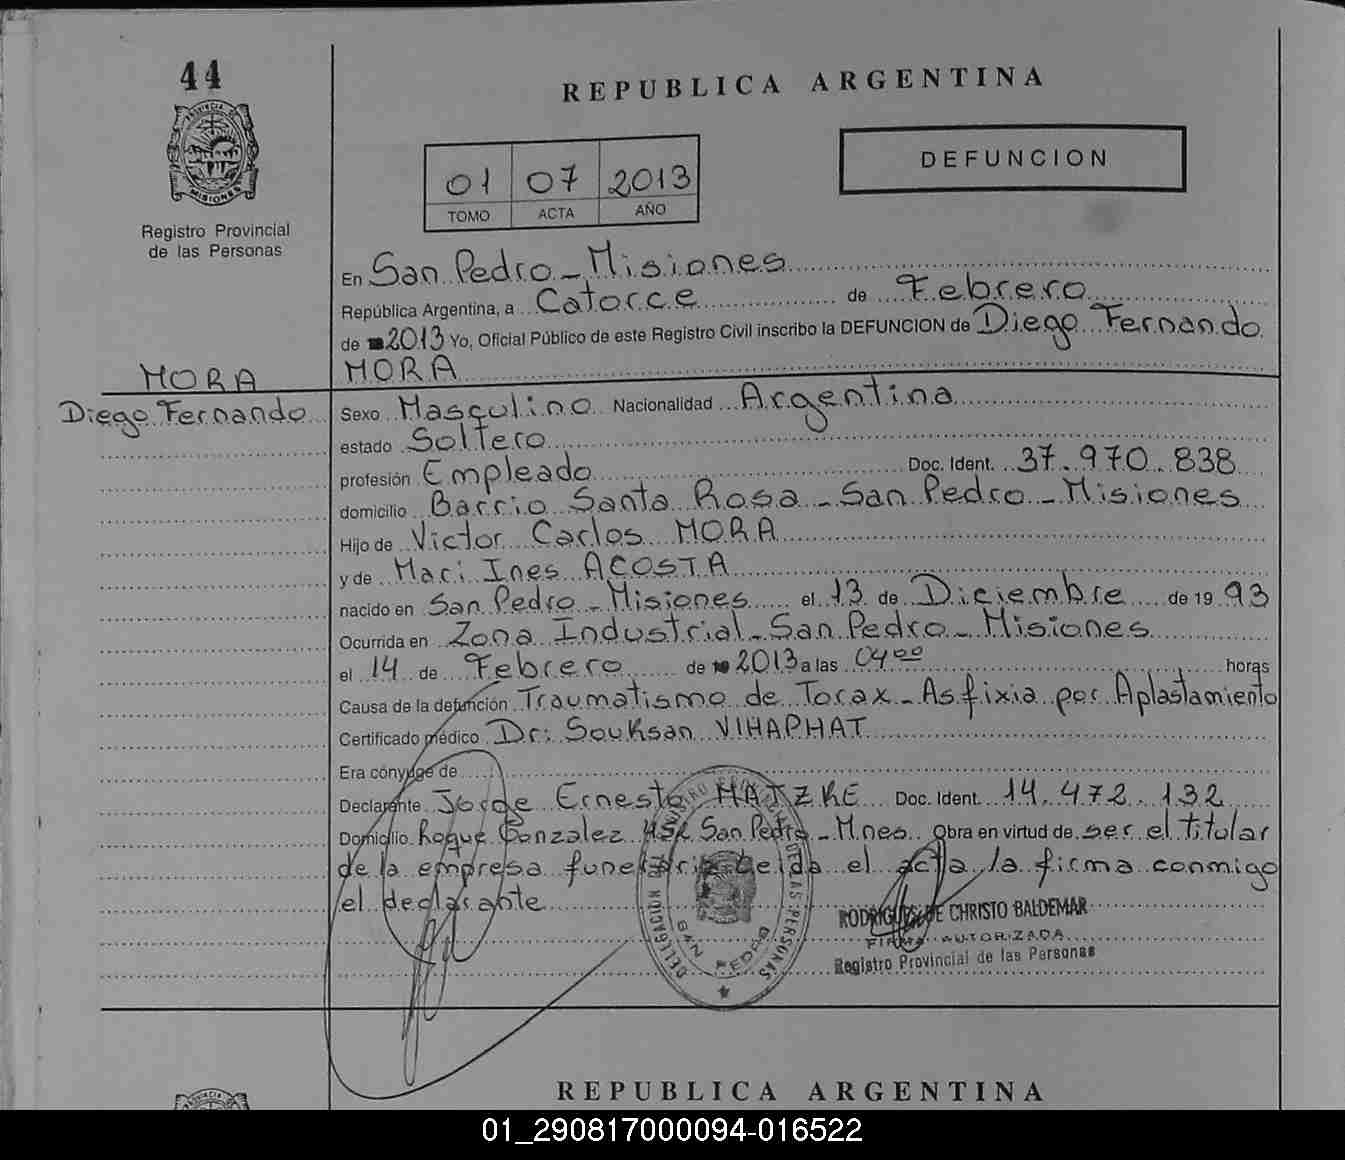 44
REPUBLICA ARGENTINA
PROVINCIA DE MISIONES
Registro Provincial
de las Personas
01 07 2013
TOMO ACTA AÑO
DEFUNCION
En San Pedro - Misiones
República Argentina, a Catorce de Febrero
de 2013 Yo, Oficial Público de este Registro Civil inscribo la DEFUNCION de Diego Fernando
MORA
MORA
Diego Fernando
Sexo Masculino Nacionalidad Argentina
estado Soltero
profesión Empleado Doc. Ident. 37.970.838
domicilio Barrio Santa Rosa - San Pedro - Misiones
Hijo de Victor Carlos MORA
y de Mari Ines ACOSTA
nacido en San Pedro - Misiones el 13 de Diciembre de 19 93
Ocurrida en Zona Industrial - San Pedro - Misiones
el 14 de Febrero de 2013 a las 04⁰⁰ horas
Causa de la defunción Traumatismo de Torax - Asfixia por Aplastamiento
Certificado médico Dr: Souksan VIHAPHAT
Era cónyuge de
Declarante Jorge Ernesto MATZKE Doc. Ident. 14.472.132
Domicilio Roque Gonzalez San Pedro - Mnes. Obra en virtud de ser el titular
de la empresa funeraria leida el acta la firma conmigo
el declarante
DELEGACION SAN PEDRO
RODRIGUES DE CHRISTO BALDEMAR
FIRMA AUTORIZADA
Registro Provincial de las Personas
REPUBLICA ARGENTINA
01_290817000094-016522